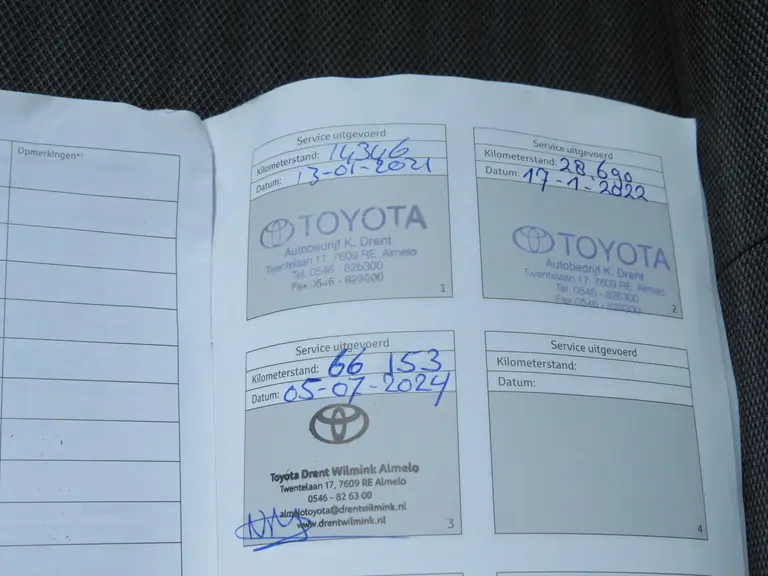 Opmerkingen*¹
Service uitgevoerd
Kilometerstand: 14346
Datum: 13-01-2021
TOYOTA
Autobedrijf K. Drent
Twentelaan 17 7609 RE Almelo
Tel. 0546 - 826300
Fax 0546 - 829200
1
Service uitgevoerd
Kilometerstand: 28.690
Datum: 17-1-2022
TOYOTA
Autobedrijf K. Drent
Twentelaan 17 7609 RE Almelo
Tel. 0546 - 826300
Fax 0546 - 829200
2
Service uitgevoerd
Kilometerstand: 66 153
Datum: 05-07-2024
Toyota Drent Wilmink Almelo
Twentelaan 17, 7609 RE Almelo
0546 - 82 63 00
almelotoyota@drentwilmink.nl
www.drentwilmink.nl
3
Service uitgevoerd
Kilometerstand:
Datum:
4